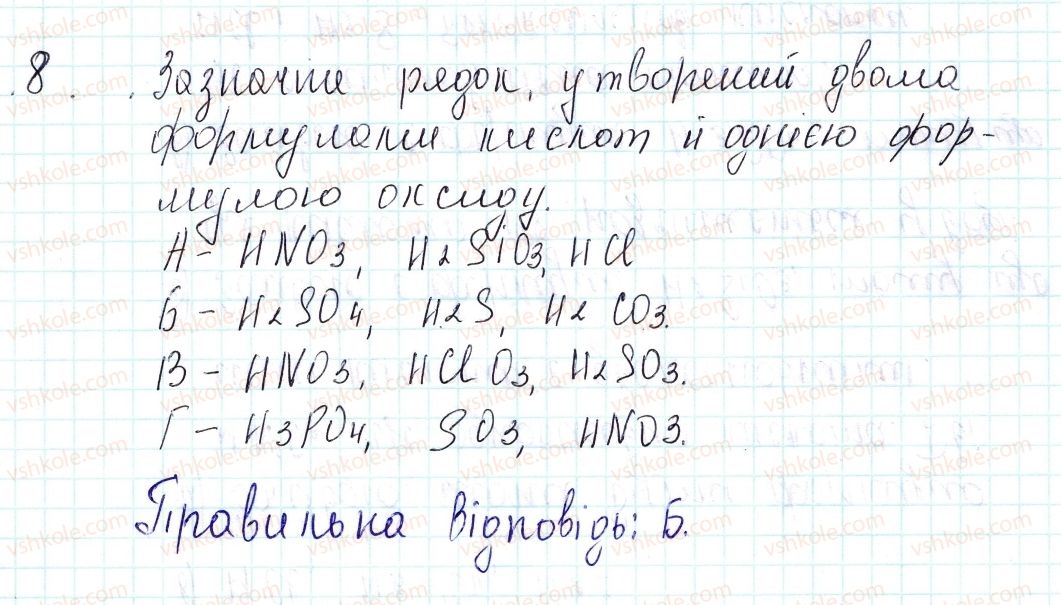 8. Зазначте рядок, утворений двома
формулами кислот й однією фор-
мулою оксиду.
А - HNO3, H2SiO3, HCl
Б - H2SO4, H2S, H2CO3.
В - HNO3, HClO3, H2SO3.
Г - H3PO4, SO3, HNO3.
Правильна відповідь: Б.